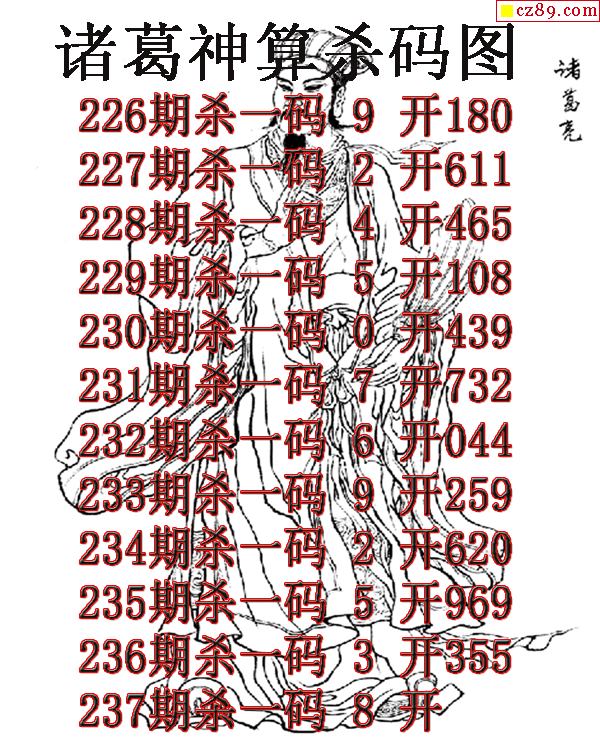 cz89.com
诸葛神算杀码图
诸葛亮
226期杀一码 9 开180
227期杀一码 2 开611
228期杀一码 4 开465
229期杀一码 5 开108
230期杀一码 0 开439
231期杀一码 7 开732
232期杀一码 6 开044
233期杀一码 9 开259
234期杀一码 2 开620
235期杀一码 5 开969
236期杀一码 3 开355
237期杀一码 8 开